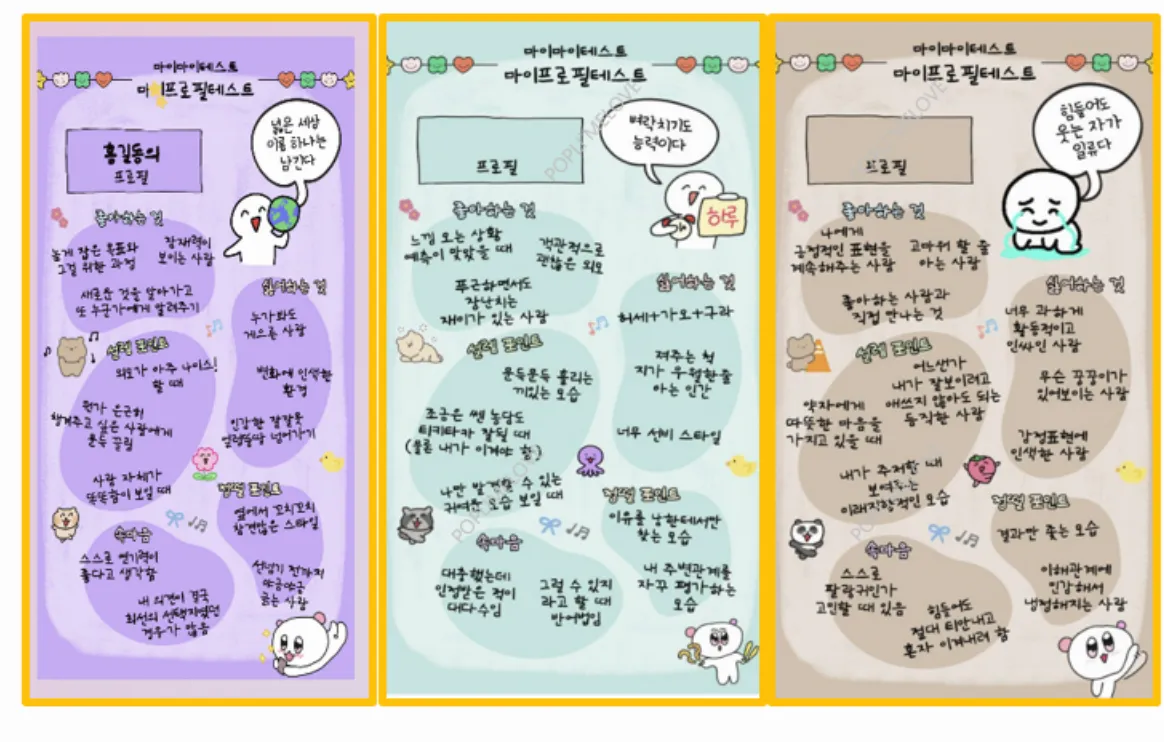 마이마이테스트
마이프로필테스트
넓은 세상
이름 하나는
남긴다
홍길동의
프로필
좋아하는 것
높게 잡은 목표와
그걸 위한 과정
잠재력이
보이는 사람
새로운 것을 알아가고
또 누군가에게 알려주기
싫어하는 것
누가봐도
게으른 사람
변화에 인색한
환경
민감한 잘잘못
얼렁뚱땅 넘어가기
설렘 포인트
외모가 아주 나이스!
할 때
뭔가 은근히
챙겨주고 싶은 사람에게
운득 끌림
사람 자체가
똑똑함이 보일 때
정떨 포인트
옆에서 꼬치꼬치
참견많은 스타일
선넘기 전까지
바득바득
긁는 사람
속마음
스스로 연기력이
좋다고 생각함
내 의견이 결국
최선의 선택지였던
경우가 많음
마이마이테스트
마이프로필테스트
벼락치기도
능력이다
프로필
하루
좋아하는 것
느낌 오는 상황
예측이 맞았을 때
객관적으로
괜찮은 외모
푸근하면서도
장난치는
재미가 있는 사람
싫어하는 것
허세+가오+구라
져주는 척
지가 우월한줄
아는 인간
너무 선비 스타일
설렘 포인트
문득문득 흘리는
끼있는 모습
조금은 쎈 농담도
티키타카 잘될 때
(물론 내가 이겨야 함)
나만 발견할 수 있는
귀여운 모습 보일 때
정떨 포인트
이유를 남한테서만
찾는 모습
내 주변관계를
자꾸 평가하는
모습
속마음
대충했는데
인정받은 적이
대다수임
그럴 수 있지
라고 할 때
반어법임
POPLYMELOVE
마이마이테스트
마이프로필테스트
힘들어도
웃는 자가
일류다
프로필
좋아하는 것
나에게
긍정적인 표현을
계속해주는 사람
고마워 할 줄
아는 사람
좋아하는 사람과
직접 만나는 것
싫어하는 것
너무 과하게
활동적이고
인싸인 사람
무슨 꿍꿍이가
있어보이는 사람
감정표현에
인색한 사람
설렘 포인트
어느샌가
내가 잘보이려고
애쓰지 않아도 되는
듬직한 사람
약자에게
따뜻한 마음을
가지고 있을 때
내가 주저할 때
보여주는
미래지향적인 모습
정떨 포인트
결과만 좇는 모습
이해관계에
민감해서
냉정해지는 사람
속마음
스스로
팔랑귀인가
고민할 때 있음
힘들어도
절대 티안내고
혼자 이겨내려 함